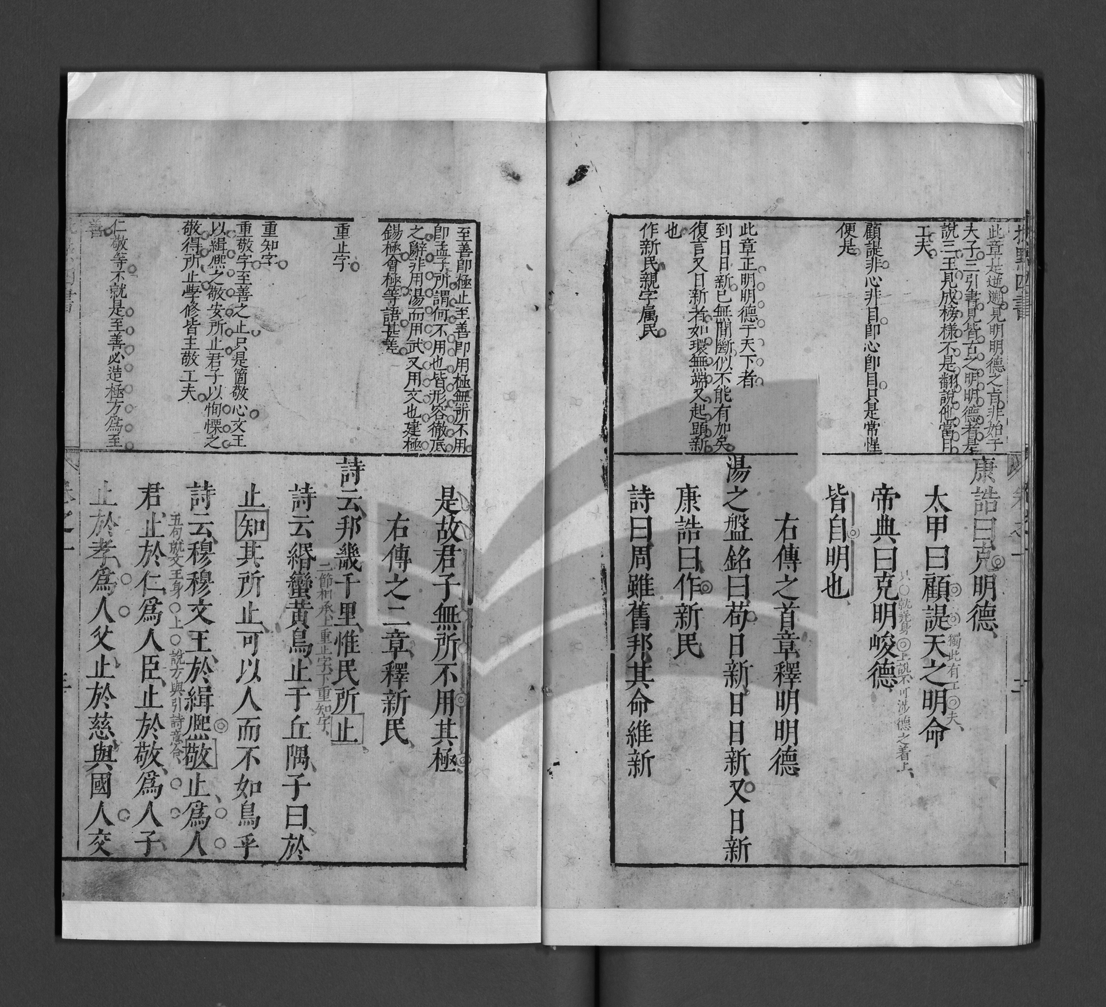 此章是通過見明明德之旨非始于
夫子三引書見皆古之明明德者是
說三王見成榜樣不是翻說他當日
工夫
顧諟非心非目即心即目只是常惺
便是
此章正明明德于天下者
到日日新已無間斷似不能有加矣
復言又日新者如環無端又起頭新
也
作新民親字屬民
康誥曰克明德
太甲曰顧諟天之明命
獨此有工夫
帝典曰克明峻德
只就說身上說不可涉德之著上
皆自明也
右傳之首章釋明明德
湯之盤銘曰苟日新日日新又日新
康誥曰作新民
詩曰周雖舊邦其命維新
至善即極止至善即用極無所不用
即孟子所謂何不用也皆形容徹底
之辭非用湯而用武又用文也建極
錫極會極等語甚差
重止字
重知字
重敬字至善之止只是箇敬心文王
以緝熙之敬安所止君子以恂慄之
敬得所止學修皆主敬工夫
仁敬等不就是至善必造極方為至
善
是故君子無所不用其極
右傳之二章釋新民
詩云邦畿千里惟民所止
二節相承上重止字下重知字
詩云緡蠻黃鳥止于丘隅子曰於
止知其所止可以人而不如鳥乎
詩云穆穆文王於緝熙敬止為人
五句就文王身上說方與引詩意合
君止於仁為人臣止於敬為人子
止於孝為人父止於慈與國人交